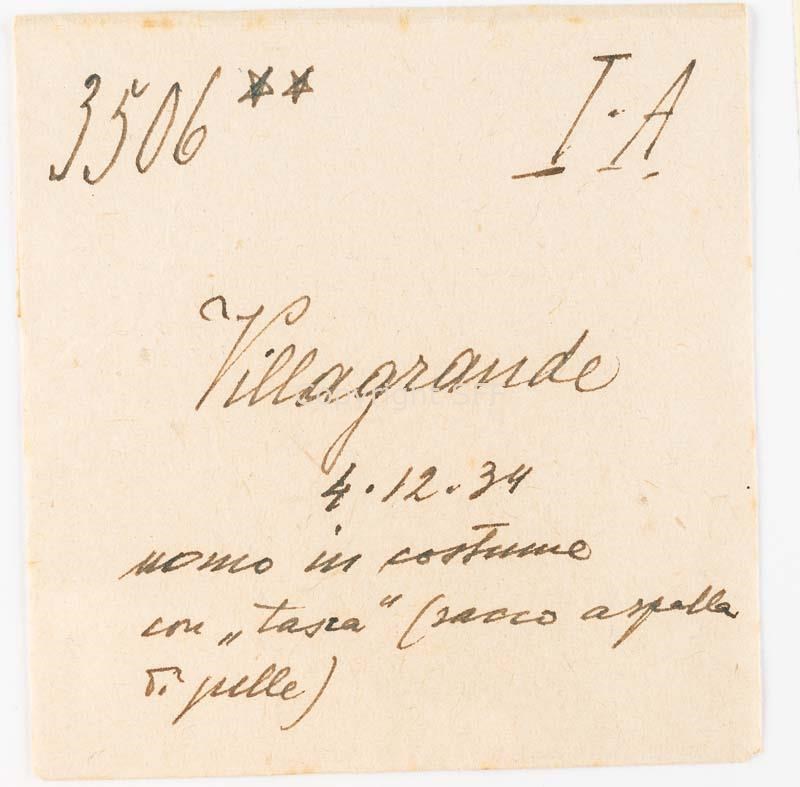 3506 ** I·A
Villagrande
4·12·34
uomo in costume
con „tasca“ (sacco a spalla
di pelle)